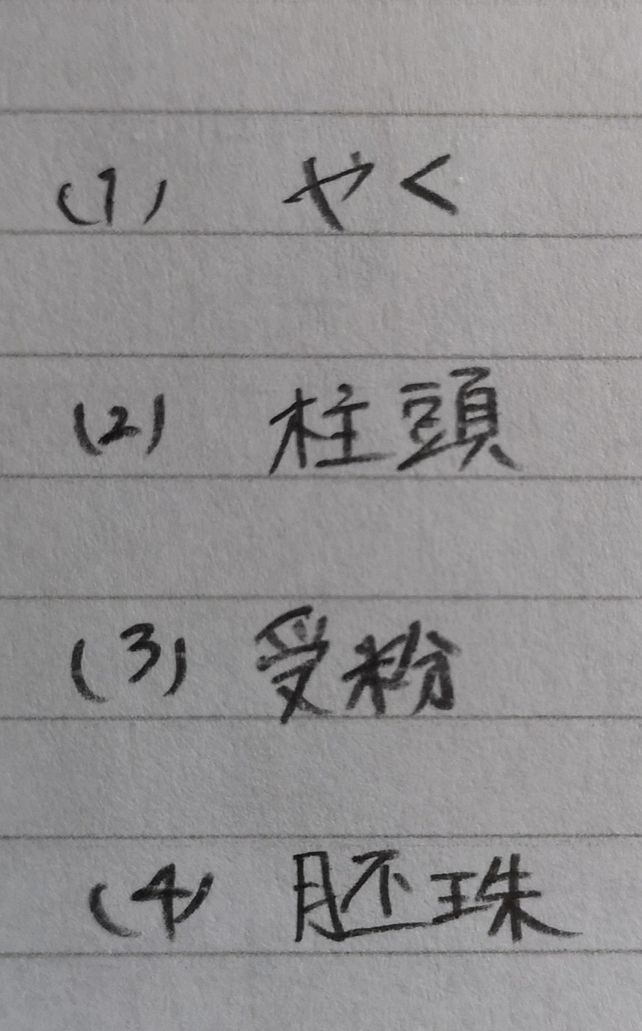 (1) やく
(2) 柱頭
(3) 受粉
(4) 胚珠